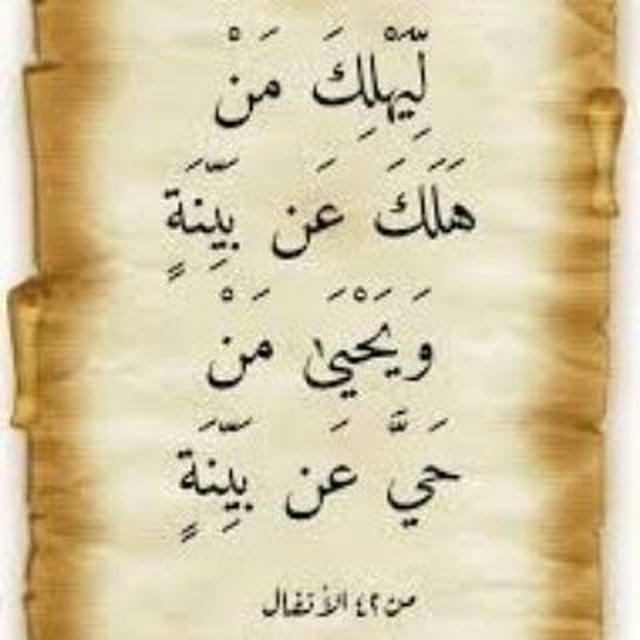 لِّيَهْلِكَ مَنْ
هَلَكَ عَن بَيِّنَةٍ
وَيَحْيَىٰ مَنْ
حَيَّ عَن بَيِّنَةٍ
من ٤٢ الأنفال